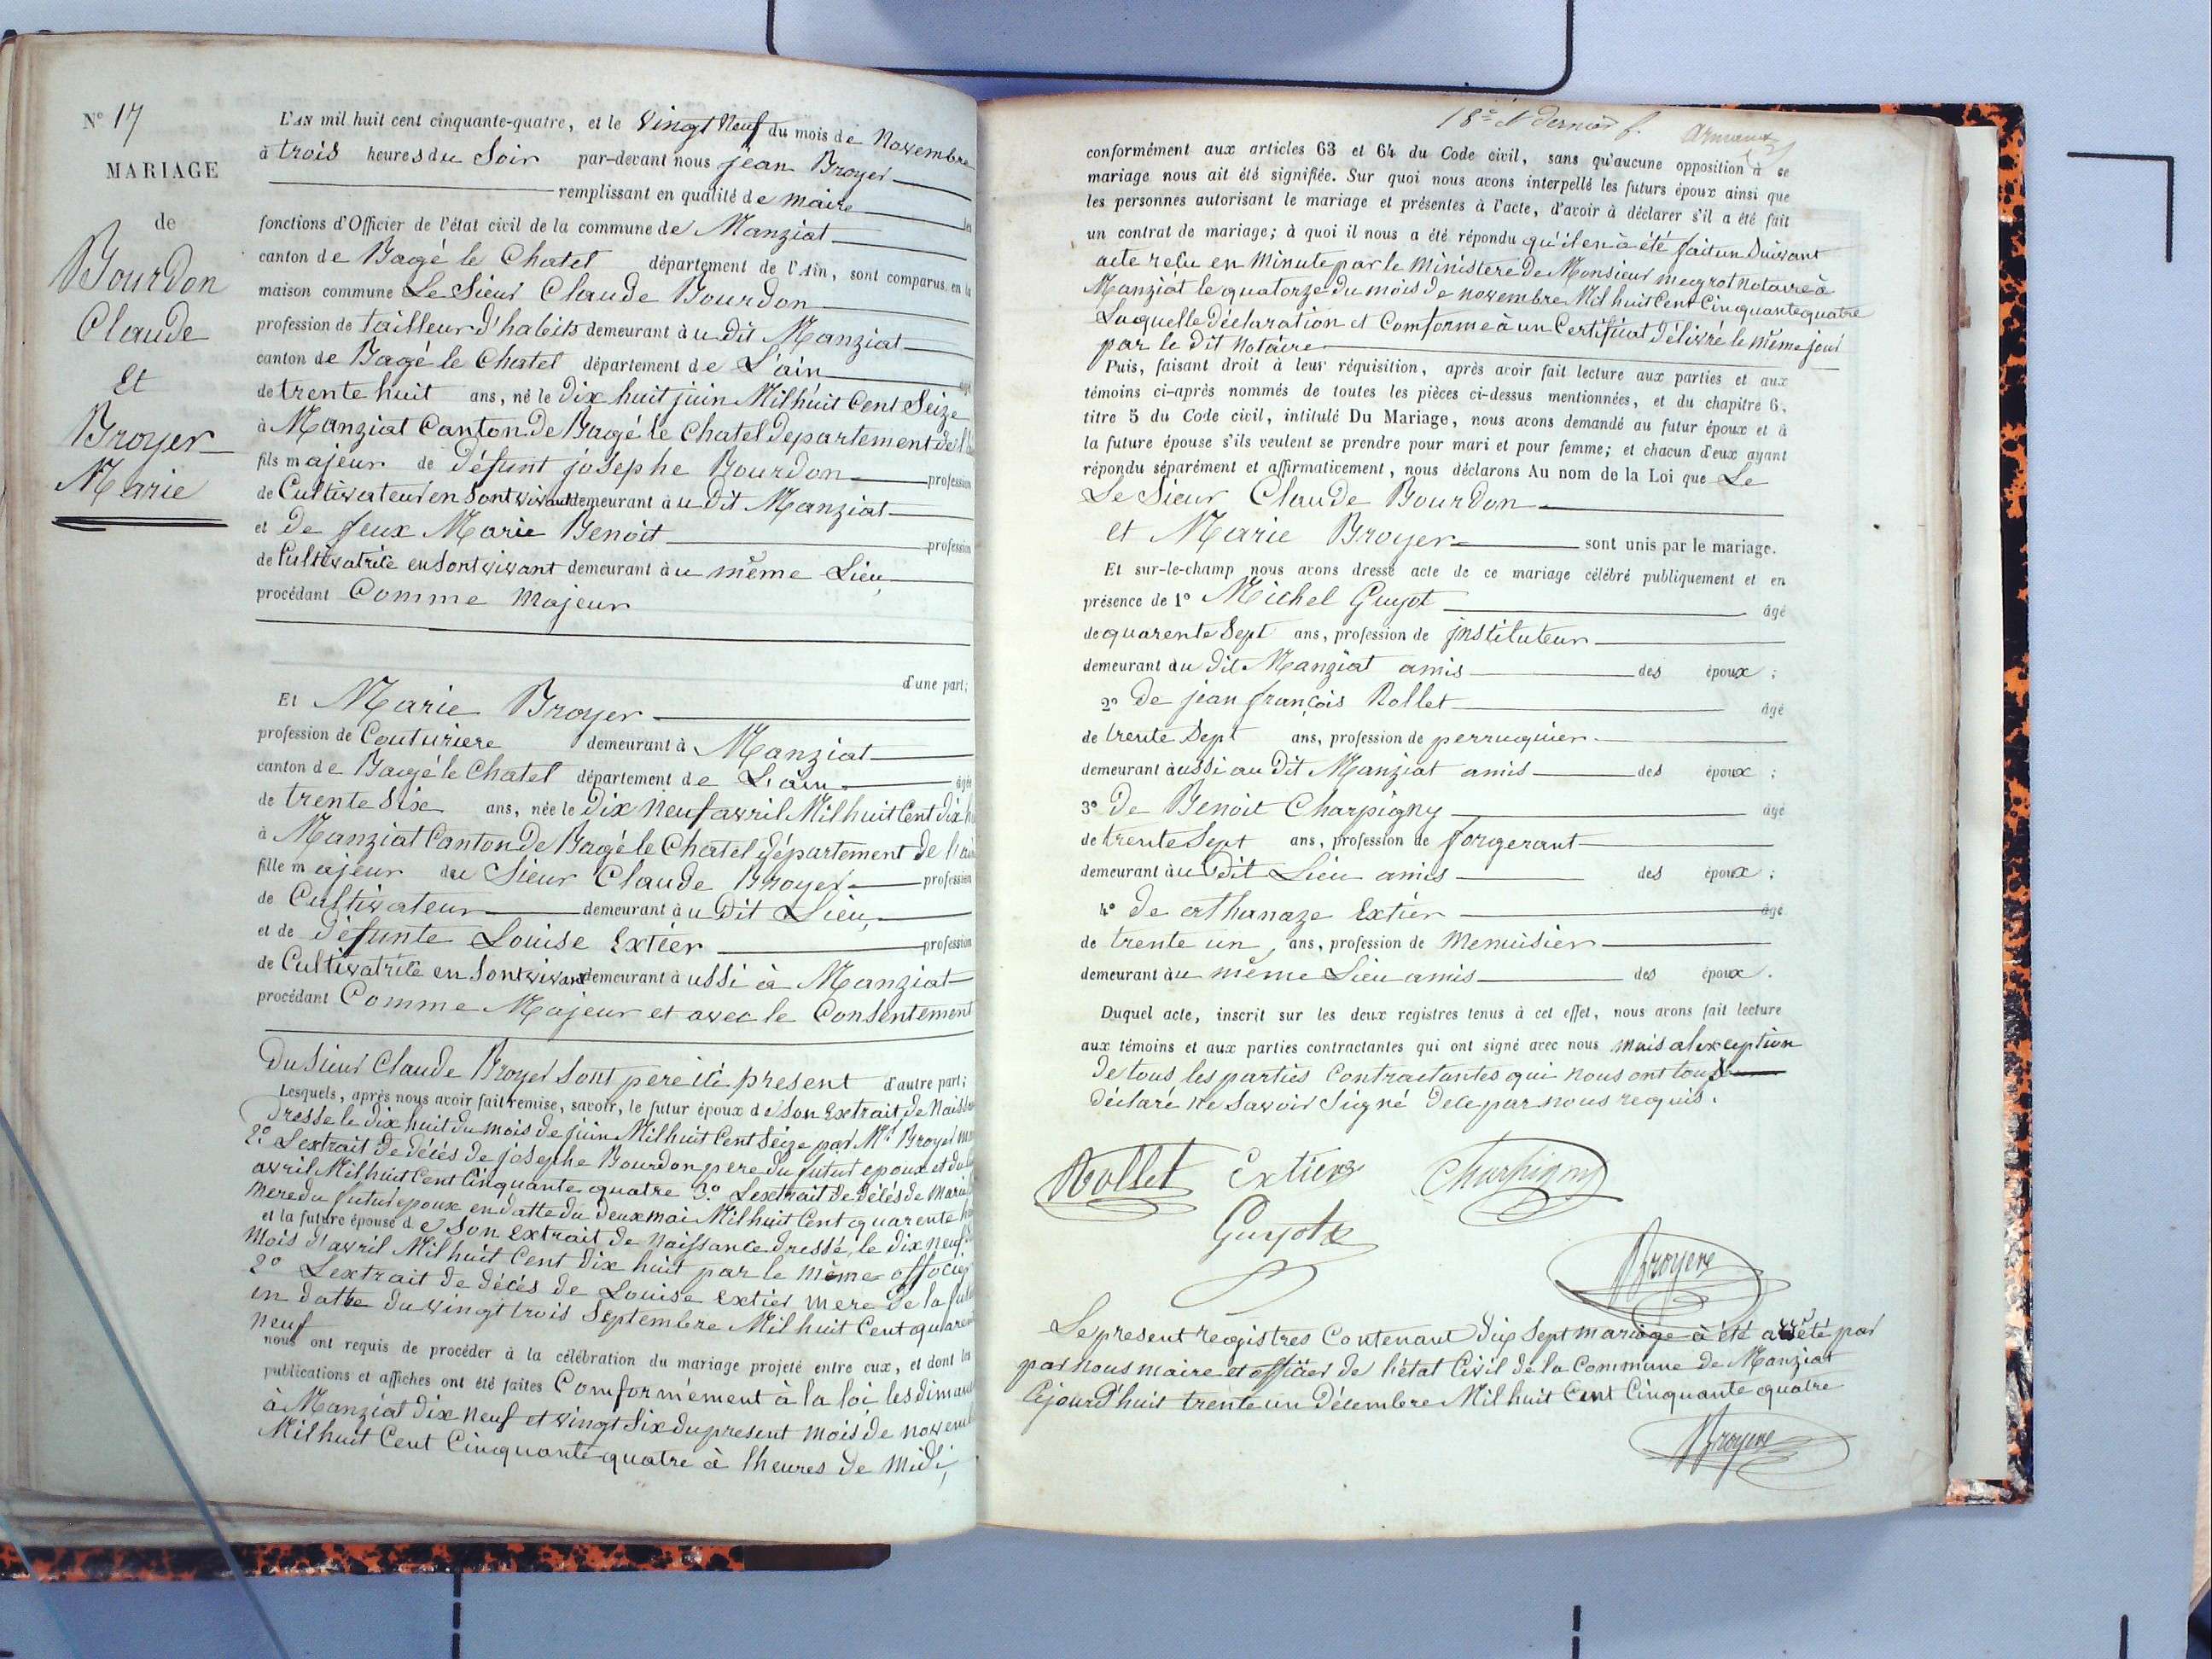 N° 17
MARIAGE
de
Bourdon
Claude
Et
Broyer
Marie
L'AN mil huit cent cinquante-quatre, et le Vingt Neuf du mois de Novembre
à trois heures du Soir par-devant nous jean Broyer
remplissant en qualité de maire les
fonctions d'Officier de l'état civil de la commune de Manziat
canton de Bagé le Chatel département de l'Ain, sont comparus en la
maison commune Le Sieur Claude Bourdon
profession de tailleur d'habits demeurant au dit Manziat
canton de Bagé le Chatel département de L'ain âgé
de trente huit ans, né le Dix huit juin Mil huit Cent Seize
à Manziat Canton de Bagé le Chatel departement de l'
fils majeur de défunt josephe Bourdon profession
de Cultivateur en Sont vivant demeurant au dit Manziat
et de feux Marie Benoit profession
de Cultivatrice en Sont vivant demeurant au même Lieu,
procédant Comme Majeur
d'une part;
Et Marie Broyer
profession de Couturiere demeurant à Manziat
canton de Bagé le Chatel département de L'ain âgée
de trente Six ans, née le Dix Neuf avril Mil huit Cent dix h
à Manziat Canton de Bagé le Chatel département de l'ain
fille majeur du Sieur Claude Broyer profession
de Cultivateur demeurant au dit Lieu,
et de défunte Louise Extier profession
de Cultivatrice en Sont vivant demeurant aussi à Manziat
procédant Comme Majeur et avec le Consentement
Du Sieur Claude Broyer Sont pere ici present d'autre part;
Lesquels, après nous avoir fait remise, savoir, le futur époux de Son Extrait de Naiss
Dresse le dix huit du mois de juin Mil huit Cent Seize par Mr Broyer
2° L'extrait de décés de josephe Bourdon pere du futur epoux et du
avril Mil huit Cent Cinquante quatre 3° L'extrait de décés de Marie
Mere du futur epoux en datte du deux mai Mil huit Cent quarente
et la future épouse de Son Extrait de Naissance dressé, le dix neuf
Mois d'avril Mil huit Cent Dix huit par le même officier
2° L'extrait de décés de Louise Extier mere de la
en datte du vingt trois Septembre Mil huit Cent quaren
neuf
nous ont requis de procéder à la célébration du mariage projeté entre eux, et dont les
publications et affiches ont été faites Comformément à la loi les diman
à Manziat dix neuf et vingt Six du present mois de novemb
Mil huit Cent Cinquante quatre à l'heures de Midi,
18e
conformément aux articles 63 et 64 du Code civil, sans qu'aucune opposition à ce
mariage nous ait été signifiée. Sur quoi nous avons interpellé les futurs époux ainsi que
les personnes autorisant le mariage et présentes à l'acte, d'avoir à déclarer s'il a été fait
un contrat de mariage; à quoi il nous a été répondu qu'il en à été fait un Suivant
acte relu en Minute par le Ministere de Monsieur megrot Notaire à
Manziat le quatorze du mois de novembre Mil huit Cent Cinquante quatre
Laquelle Déclaration et Comforme à un Certificat délivré le même jour
par le dit Notaire
Puis, faisant droit à leur réquisition, après avoir fait lecture aux parties et aux
témoins ci-après nommés de toutes les pièces ci-dessus mentionnées, et du chapitre 6,
titre 5 du Code civil, intitulé Du Mariage, nous avons demandé au futur époux et à
la future épouse s'ils veulent se prendre pour mari et pour femme; et chacun d'eux ayant
répondu séparément et affirmativement, nous déclarons Au nom de la Loi que Le
Le Sieur Claude Bourdon
et Marie Broyer sont unis par le mariage.
Et sur-le-champ nous avons dressé acte de ce mariage célébré publiquement et en
présence de 1° Michel Guyot âgé
de quarente Sept ans, profession de jnstituteur
demeurant au dit Manziat amis des époux;
2° de jean françois Rollet âgé
de trente Sept ans, profession de perruquier
demeurant aussi au dit Manziat amis des époux;
3° de Benoit Charpigny âgé
de trente Sept ans, profession de forgerant
demeurant au dit Lieu amis des époux;
4° de athanaze Extier âgé
de trente un, ans, profession de Menuisier
demeurant au même Lieu amis des époux.
Duquel acte, inscrit sur les deux registres tenus à cet effet, nous avons fait lecture
aux témoins et aux parties contractantes qui ont signé avec nous mais al'exception
de tous les parties Contractantes qui nous ont tous
déclaré ne Savoir Signé de ce par nous requis.
Rollet Extier Charpigny
Guyot
Broyer
Le present registres Contenant dix Sept mariage à été arrêté par
par nous maire et officier de l'état Civil de la Commune de Manziat
Cejourd'huit trente un Décembre Mil huit Cent Cinquante quatre
Broyer